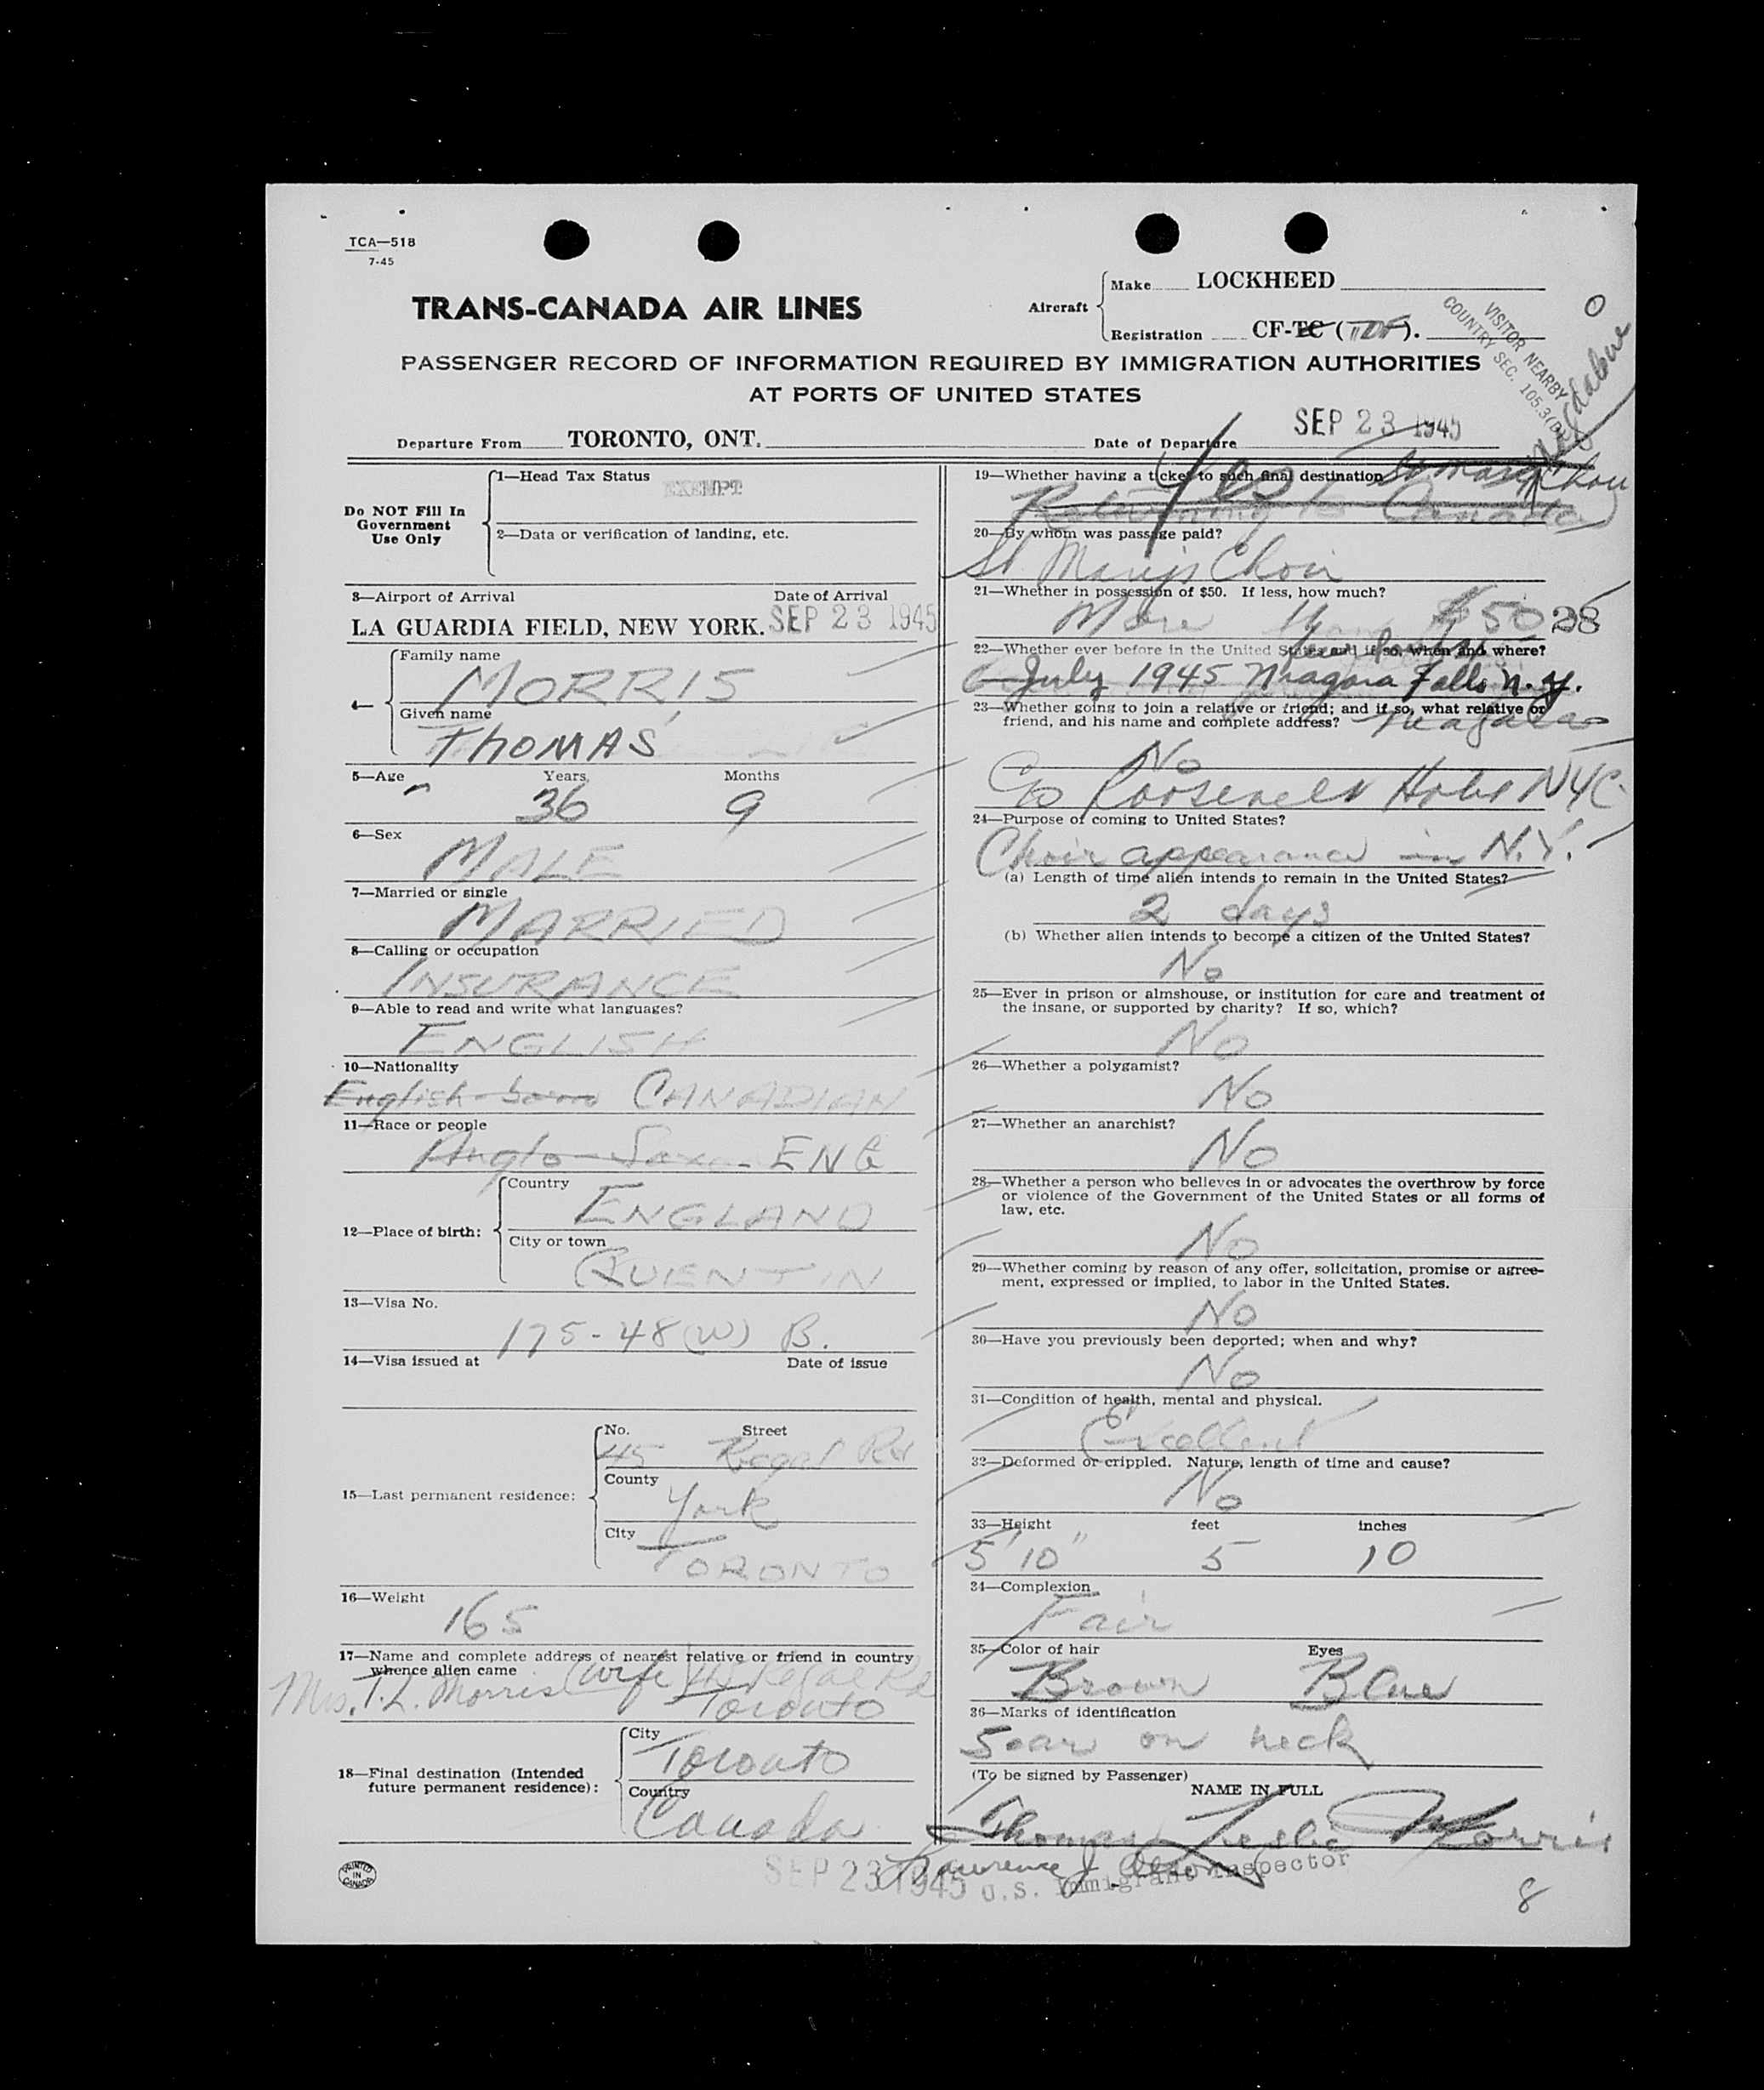 TCA—518
7-45
TRANS-CANADA AIR LINES
Aircraft
Make LOCKHEED
Registration CF-TC ( ).
VISITOR NEARBY
COUNTRY SEC. 105.3(b)
PASSENGER RECORD OF INFORMATION REQUIRED BY IMMIGRATION AUTHORITIES
AT PORTS OF UNITED STATES
Departure From TORONTO, ONT.
Date of Departure SEP 23 1945
Do NOT Fill In
Government
Use Only
1—Head Tax Status
EXEMPT
2—Data or verification of landing, etc.
3—Airport of Arrival Date of Arrival
LA GUARDIA FIELD, NEW YORK. SEP 23 1945
4—
Family name
MORRIS
Given name
THOMAS
5—Age Years Months
36 9
6—Sex
MALE
7—Married or single
MARRIED
8—Calling or occupation
INSURANCE
9—Able to read and write what languages?
ENGLISH
10—Nationality
English born CANADIAN
11—Race or people
Anglo-Saxon ENG
12—Place of birth:
Country
ENGLAND
City or town
QUENTIN
13—Visa No.
175-48(W) B.
14—Visa issued at Date of issue
15—Last permanent residence:
No. Street
45 Regal Rd
County
York
City
TORONTO
16—Weight
165
17—Name and complete address of nearest relative or friend in country
whence alien came
Mrs. T.L. Morris (wife) 45 Regal Rd
Toronto
18—Final destination (Intended
future permanent residence):
City
Toronto
Country
Canada
19—Whether having a ticket to such final destination
Yes St Marys Choir
Returning to Canada
20—By whom was passage paid?
St. Mary's Choir
21—Whether in possession of $50. If less, how much?
More than $50 28
22—Whether ever before in the United States and if so, when and where?
July 1945 Niagara Falls N.Y.
23—Whether going to join a relative or friend; and if so, what relative or
friend, and his name and complete address?
Niagara
No
Go Roosevelt Hotel NYC
24—Purpose of coming to United States?
Choir appearance in N.Y.
(a) Length of time alien intends to remain in the United States?
2 days
(b) Whether alien intends to become a citizen of the United States?
No
25—Ever in prison or almshouse, or institution for care and treatment of
the insane, or supported by charity? If so, which?
No
26—Whether a polygamist?
No
27—Whether an anarchist?
No
28—Whether a person who believes in or advocates the overthrow by force
or violence of the Government of the United States or all forms of
law, etc.
No
29—Whether coming by reason of any offer, solicitation, promise or agree-
ment, expressed or implied, to labor in the United States.
No
30—Have you previously been deported; when and why?
No
31—Condition of health, mental and physical.
Excellent
32—Deformed or crippled. Nature, length of time and cause?
No
33—Height feet inches
5'10" 5 10
34—Complexion
Fair
35—Color of hair Eyes
Brown Blue
36—Marks of identification
Scar on neck
(To be signed by Passenger)
NAME IN FULL
Thomas Leslie Morris
SEP 23 1945 Lawrence J.
U.S. Immigrant Inspector
PRINTED
IN
CANADA
8